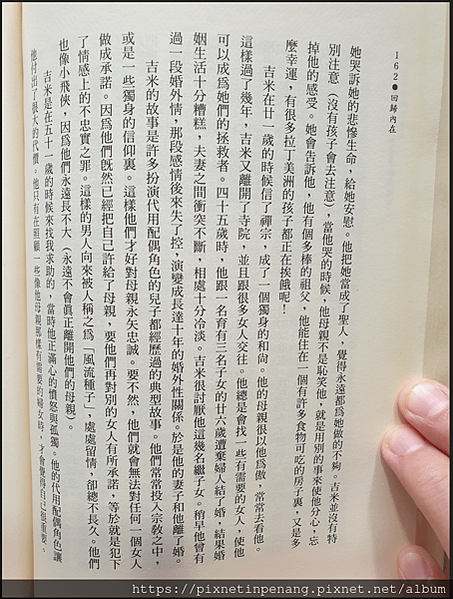 162●回歸內在
她哭訴她的悲慘生命，給她安慰。他把她當成了聖人，覺得永遠都為她做的不夠。吉米並沒有特
別注意（沒有孩子會去注意），當他哭的時候，他母親不是恥笑他，就是用別的事來使他分心，忘
掉他的感受。她會告訴他，他有個多棒的祖父，他能住在一個有許多食物可吃的房子裏，又是多
麼幸運，有很多拉丁美洲的孩子都正在挨餓呢！
吉米在廿一歲的時候信了禪宗，成了一個獨身的和尚。他的母親很以他為傲，常常去看他。
這樣過了幾年，吉米又離開了寺院，並且跟很多女人交往。他總是會找一些有需要的女人，使他
可以成為她們的拯救者。四十五歲時，他跟一名育有三名子女的廿六歲遭棄婦人結了婚，結果婚
姻生活十分糟糕，夫妻之間衝突不斷，相處十分冷淡。吉米很討厭他這幾名繼子女。稍早他曾有
過一段婚外情，那段感情後來失了控，演變成長達十年的婚外性關係。於是他的妻子和他離了婚。
吉米的故事是許多扮演代用配偶角色的兒子都經歷過的典型故事。他們常常投入宗教之中，
或是一些獨身的信仰裏。這樣他們才好對母親永矢忠誠。要不然，他們就會無法對任何一個女人
做成承諾。因為他們既然已經把自己許給了母親，要他們再對別的女人有所承諾，等於就是犯下
了情感上的不忠實之罪。這樣的男人向來被人稱之為「風流種子」，處處留情，卻總不長久。他們
也像小飛俠，因為他們永遠長不大（永遠不會真正離開他們的母親）。
吉米是在五十一歲的時候來找我求助的，當時他正滿心的憤怒與孤獨。他的代用配偶角色讓
他付出了很大的代價。他只有在照顧一些像他母親那樣有需要的婦女時，才會覺得自己很重要。
https://pixnetinpenang.pixnet.net/album